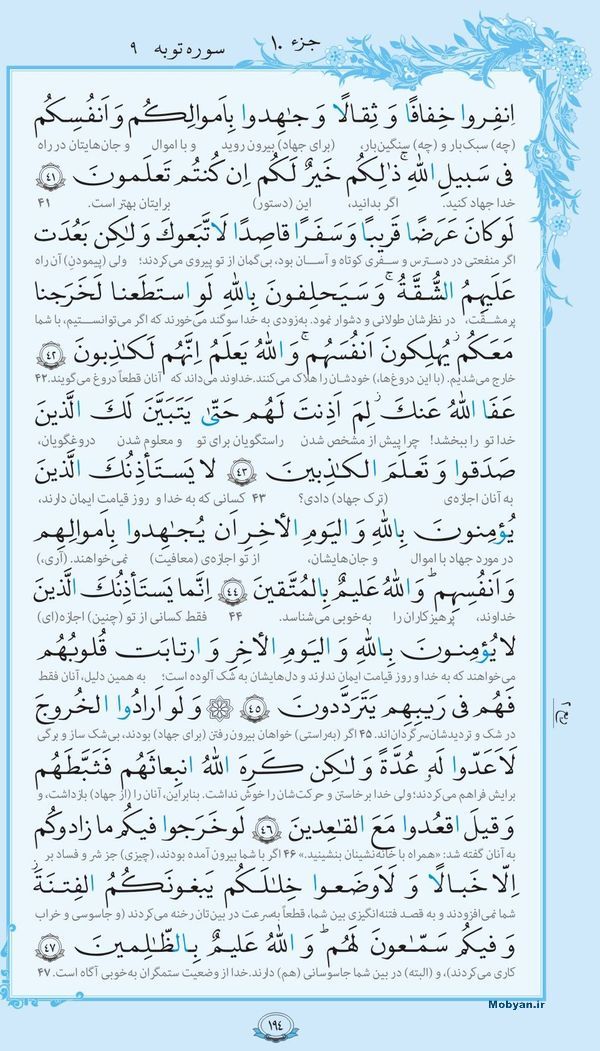 جزء ۱۰
سوره توبه ۹
اِنفِروا خِفافًا وَ ثِقالًا وَ جـٰهِدوا بِاَموالِكُم وَ اَنفُسِكُم
(چه) سبک‌بار و (چه) سنگین‌بار، (برای جهاد) بیرون روید و با اموال و جان‌هایتان در راه
فی سَبیلِ اللهِ ۚ ذٰلِكُم خَیرٌ لَكُم اِن كُنتُم تَعلَمونَ ﴿۴۱﴾
خدا جهاد کنید. اگر بدانید، این (دستور) برایتان بهتر است. ۴۱
لَو كانَ عَرَضًا قَریبًا وَ سَفَرًا قاصِدًا لَاتَّبَعوكَ وَلٰكِن بَعُدَت
اگر منفعتی در دسترس و سفری کوتاه و آسان بود، بی‌گمان از تو پیروی می‌کردند؛ ولی (پیمودن) آن راه
عَلَیهِمُ الشُّقَّةُ ۚ وَ سَیَحلِفونَ بِاللهِ لَوِ استَطَعنا لَخَرَجنا
پرمشقّت، در نظرشان طولانی و دشوار نمود. به‌زودی به خدا سوگند می‌خورند که اگر می‌توانستیم، با شما
مَعَكُم یُهلِكونَ اَنفُسَهُم ۚ وَ اللهُ یَعلَمُ اِنَّهُم لَكـٰذِبونَ ﴿۴۲﴾
خارج می‌شدیم. (با این دروغ‌ها،) خودشان را هلاک می‌کنند. خداوند می‌داند که آنان قطعاً دروغ می‌گویند. ۴۲
عَفَا اللهُ عَنكَ لِمَ اَذِنتَ لَهُم حَتّیٰ یَتَبَیَّنَ لَكَ الَّذینَ
خدا تو را ببخشد! چرا پیش از مشخص شدن راستگویان برای تو و معلوم شدن دروغگویان،
صَدَقوا وَ تَعلَمَ الكـٰذِبینَ ﴿۴۳﴾ لا یَستَأذِنُكَ الَّذینَ
به آنان اجازه‌ی (ترک جهاد) دادی؟ ۴۳ کسانی که به خدا و روز قیامت ایمان دارند،
یُؤمِنونَ بِاللهِ وَ الیَومِ الأخِرِ اَن یُجـٰهِدوا بِاَموالِهِم
در مورد جهاد با اموال و جان‌هایشان، از تو اجازه‌ی (معافیت) نمی‌خواهند. (آری،)
وَ اَنفُسِهِم ۗ وَ اللهُ عَلیمٌ بِالمُتَّقینَ ﴿۴۴﴾ اِنَّما یَستَأذِنُكَ الَّذینَ
خداوند، پرهیزکاران را به‌خوبی می‌شناسد. ۴۴ فقط کسانی از تو (چنین) اجازه(ای)
لا یُؤمِنونَ بِاللهِ وَ الیَومِ الأخِرِ وَ ارتابَت قُلوبُهُم
می‌خواهند که به خدا و روز قیامت ایمان ندارند و دل‌هایشان به شک آلوده است؛ به همین دلیل، آنان فقط
فَهُم فی رَیبِهِم یَتَرَدَّدونَ ﴿۴۵﴾ ۞ وَ لَو اَرادُوا الخُروجَ
در شک و تردیدشان سرگردان‌اند. ۴۵ اگر (به‌راستی) خواهان بیرون رفتن (برای جهاد) بودند، بی‌شک ساز و برگی
لَاَعَدّوا لَهو عُدَّةً وَ لٰكِن كَرِهَ اللهُ انبِعاثَهُم فَثَبَّطَهُم
برایش فراهم می‌کردند؛ ولی خدا برخاستن و حرکت‌شان را خوش نداشت. بنابراین، آنان را (از جهاد) بازداشت، و
وَ قیلَ اقعُدوا مَعَ القـٰعِدینَ ﴿۴۶﴾ لَو خَرَجوا فیكُم ما زادوكُم
به آنان گفته شد: «همراه با خانه‌نشینان بنشینید.» ۴۶ اگر با شما بیرون آمده بودند، (چیزی) جز شر و فساد بر
اِلّا خَبالًا وَ لَاَوضَعوا خِلـٰلَكُم یَبغونَكُمُ الفِتنَةَ
شما نمی‌افزودند و به قصد فتنه‌انگیزی بین شما، قطعاً به‌سرعت در بین‌تان رخنه می‌کردند (و جاسوسی و خراب
وَ فیكُم سَمّـٰعونَ لَهُم ۗ وَ اللهُ عَلیمٌ بِالظّـٰلِمینَ ﴿۴۷﴾
کاری می‌کردند)، و (البته) در بین شما جاسوسانی (هم) دارند. خدا از وضعیت ستمگران به‌خوبی آگاه است. ۴۷
Mobyan.ir
۱۹۴